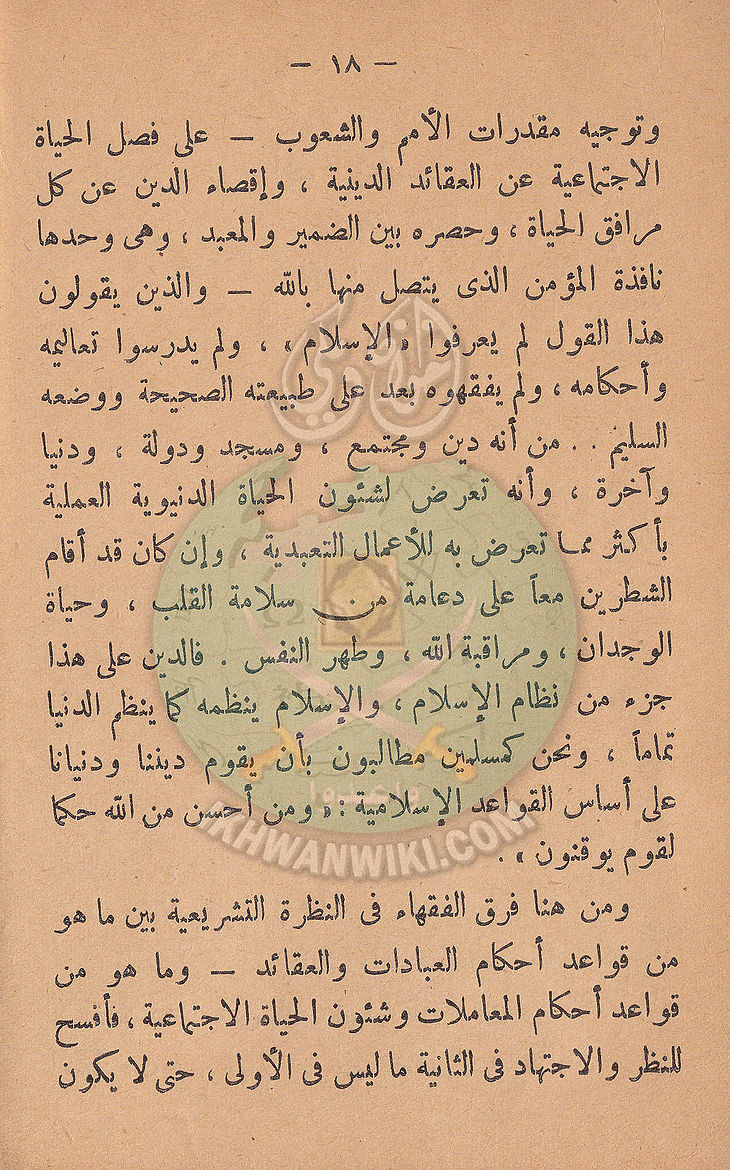 – ١٨ –
وتوجيه مقدرات الأمم والشعوب – على فصل الحياة
الاجتماعية عن العقائد الدينية ، وإقصاء الدين عن كل
مرافق الحياة ، وحصره بين الضمير والمعبد ، وهى وحدها
نافذة المؤمن الذى يتصل منها بالله – والذين يقولون
هذا القول لم يعرفوا «الإسلام» ، ولم يدرسوا تعاليمه
وأحكامه ، ولم يفقهوه بعد على طبيعته الصحيحة ووضعه
السليم . . من أنه دين ومجتمع ، ومسجد ودولة ، ودنيا
وآخرة ، وأنه تعرض لشئون الحياة الدنيوية العملية
بأكثر مما تعرض به للأعمال التعبدية ، وإن كان قد أقام
الشطرين معاً على دعامة من سلامة القلب ، وحياة
الوجدان ، ومراقبة الله ، وطهر النفس . فالدين على هذا
جزء من نظام الإسلام ، والإسلام ينظمه كما ينظم الدنيا
تماماً ، ونحن كمسلمين مطالبون بأن يقوم ديننا ودنيانا
على أساس القواعد الإسلامية : « ومن أحسن من الله حكما
لقوم يوقنون » .
ومن هنا فرق الفقهاء فى النظرة التشريعية بين ما هو
من قواعد أحكام العبادات والعقائد – وما هو من
قواعد أحكام المعاملات وشئون الحياة الاجتماعية ، فأفسح
للنظر والاجتهاد فى الثانية ما ليس فى الأولى ، حتى لا يكون
IKHWANWIKI.COM